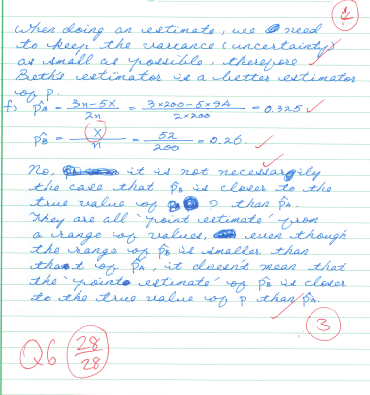 4
When doing an estimate, we need
to keep the variance (uncertainty)
as small as possible, therefore
Beth's estimator is a better estimator
of p.
f) p̂A = 3n-5X / 2n = 3×200-5×94 / 2×200 = 0.325
p̂B = X / n = 52 / 200 = 0.26.
No, it is not necessargily
the case that p̂B is closer to the
true value of p than p̂A.
They are all 'point estimate' from
a range of values, even though
the range of p̂B is smaller than
that of p̂A, it doesn't mean that
the 'point estimate' of p̂B is closer
to the true value of p than p̂A.
3
Q6 28/28